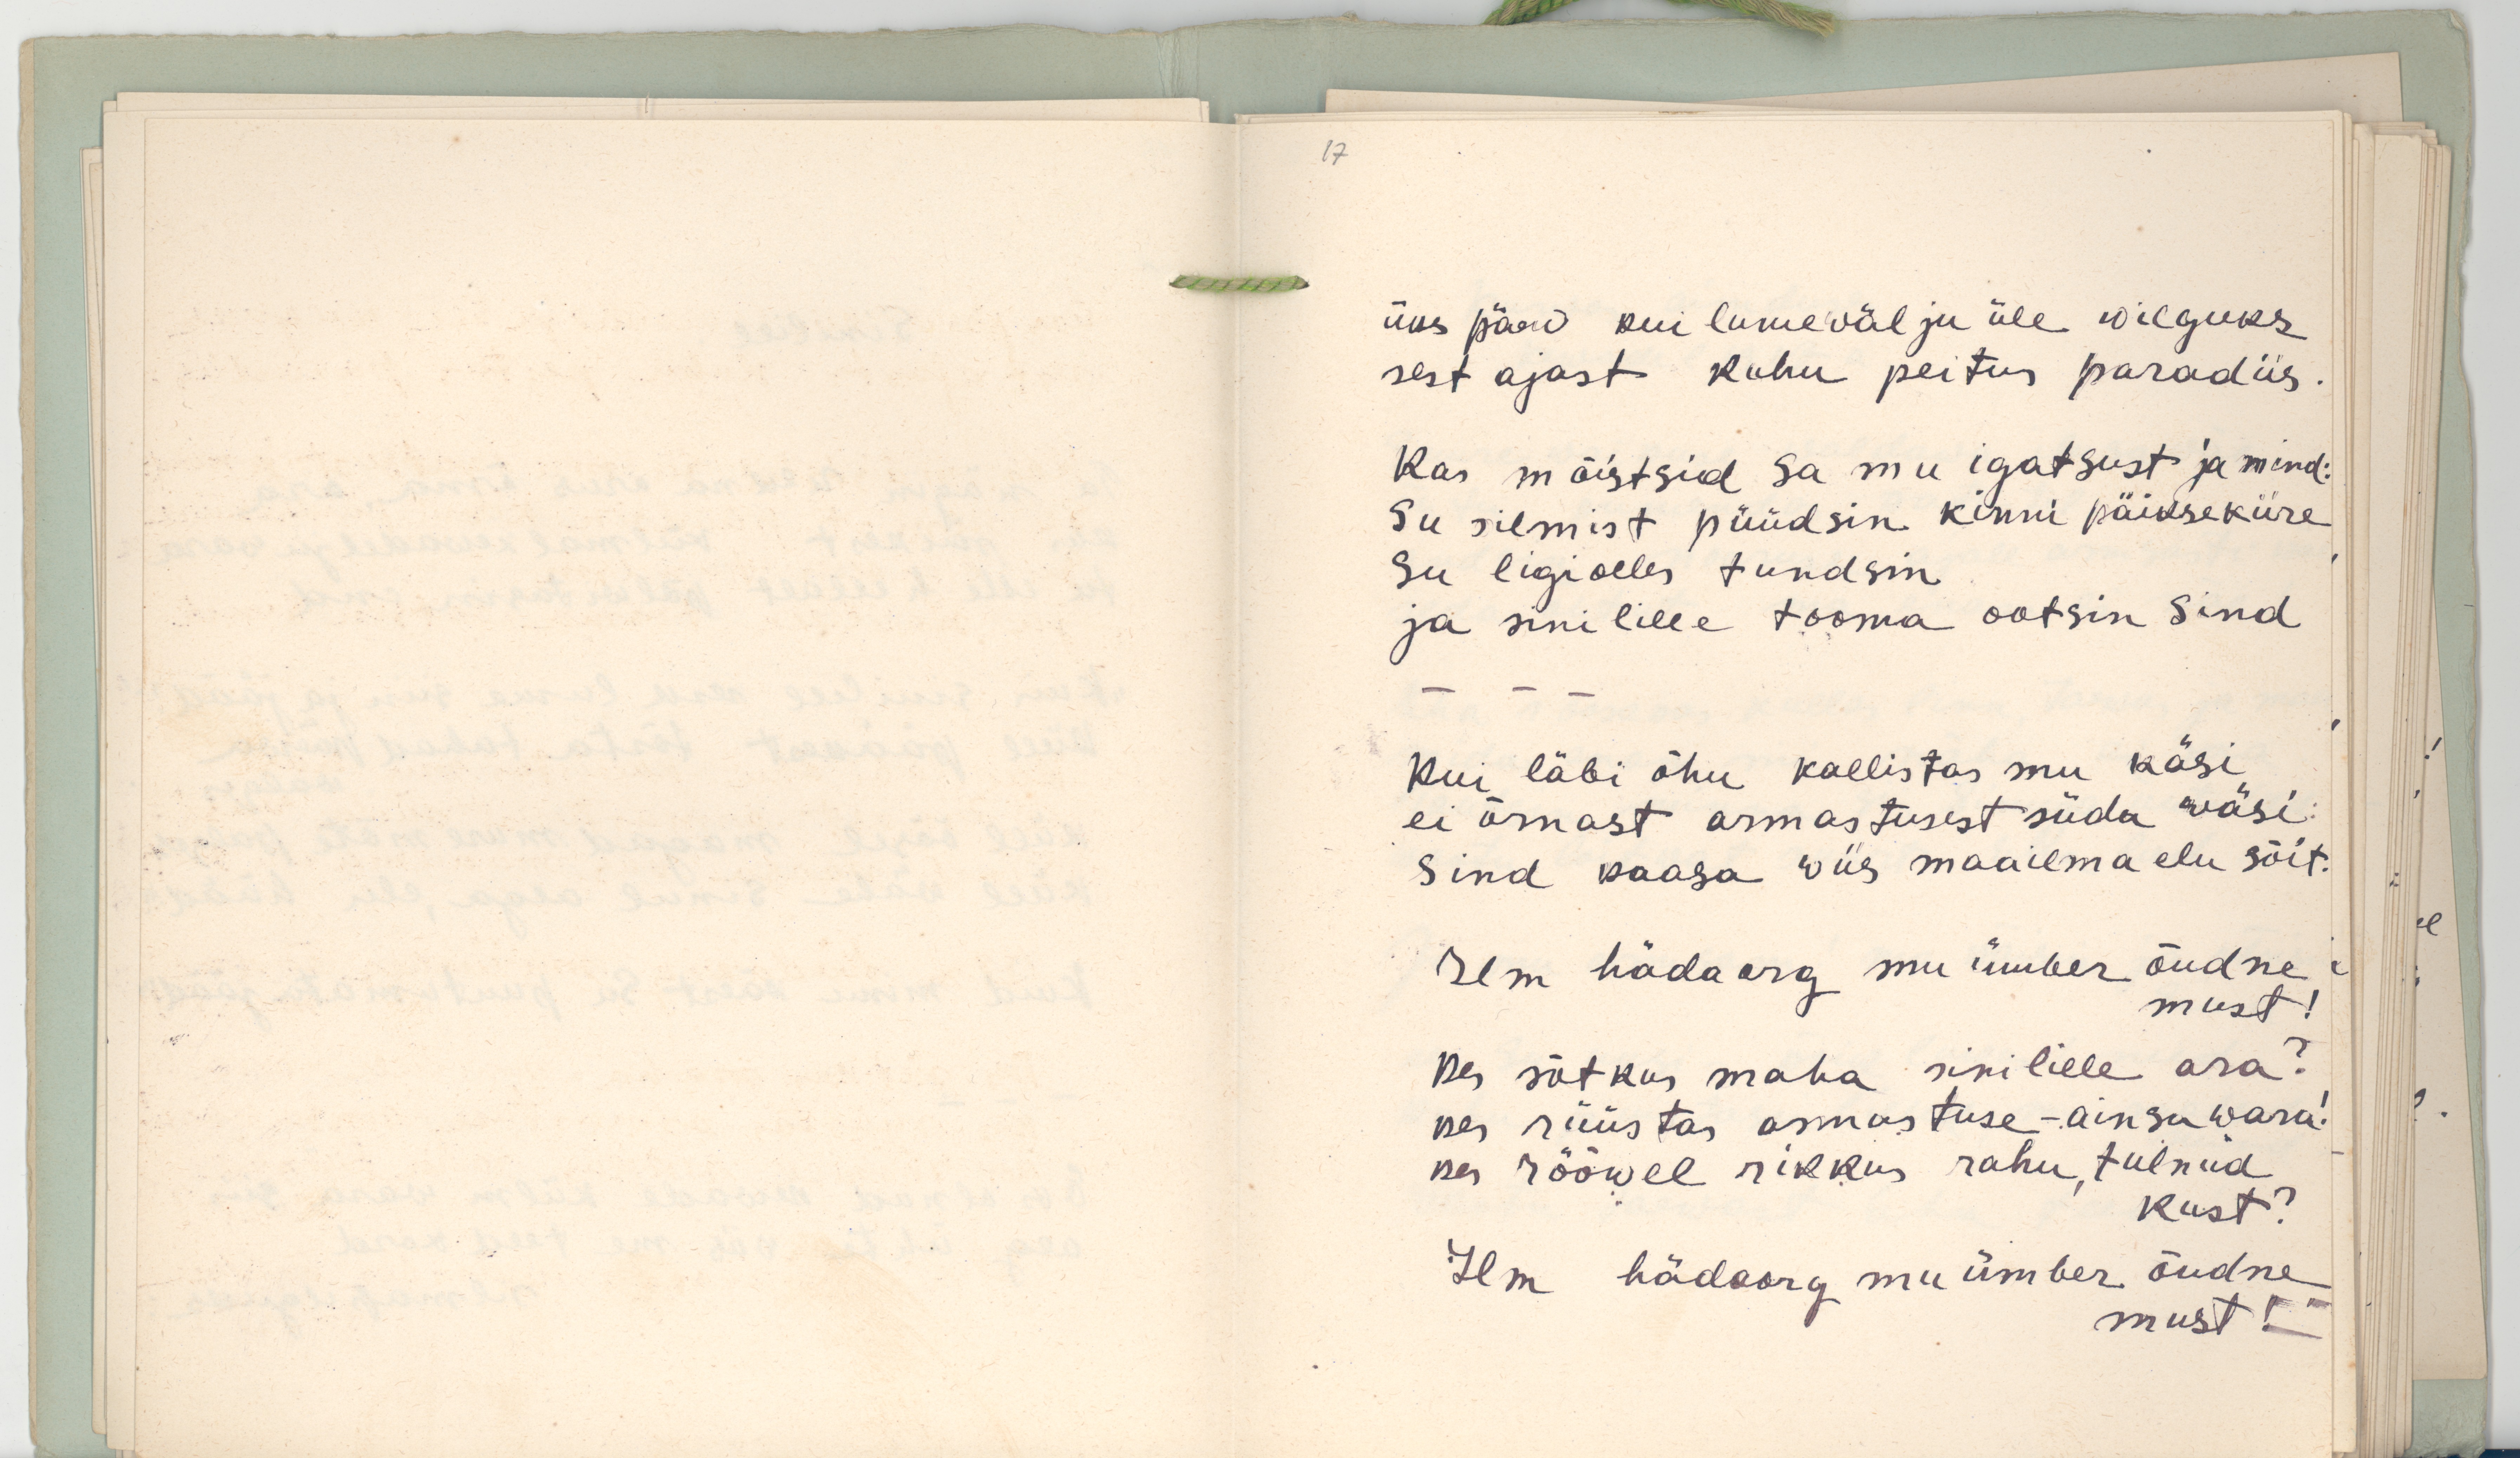 17
üks päew kui lumewälju üle wilguks
sest ajast kuhu peitus paradiis.
Kas mõistsid sa mu igatsust ja mind:
Su silmist püüdsin kinni päiksekiire
Su ligiolles tundsin
ja sinilille tooma ootsin Sind
— — —
Kui läbi õhu kallistas mu käsi
ei õrnast armastusest süda wäsi:
Sind kaasa wiis maailma elu sõit.
Ilm hädaorg mu ümber õudne
must!
Kes sõtkus maha sinilille ara?
kes rüüstas armastuse-ainsu wara!
kes rööwel rikkus rahu, tulnud
kust?
Ilm hädaorg mu ümber õudne
must!